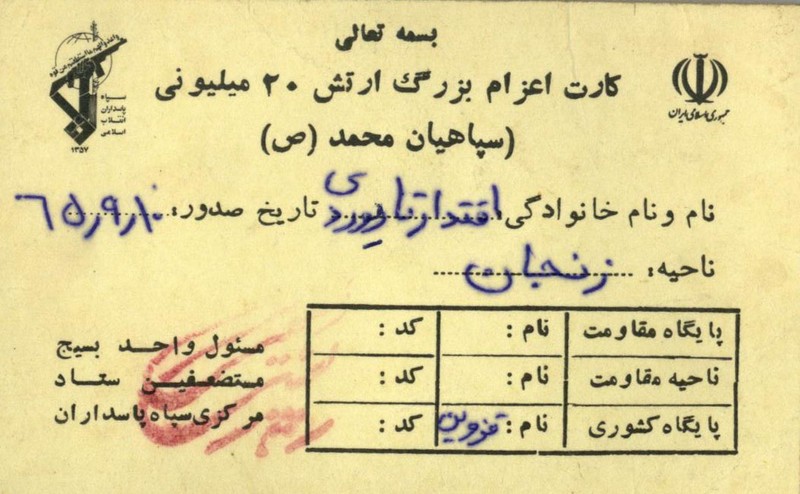 بسمه تعالی
کارت اعزام بزرگ ارتش ۲۰ میلیونی
(سپاهیان محمد (ص)
جمهوری اسلامی ایران
سپاه
پاسداران
انقلاب
اسلامی
۱۳۵۷
نام و نام خانوادگی: اقتدار تاریوردی تاریخ صدور: ۶۵/۹/۱۰
ناحیه: زنجان
پایگاه مقاومت نام: کد:
ناحیه مقاومت نام: کد:
پایگاه کشوری نام: قزوین کد:
مسئول واحد بسیج
مستضعفین ستاد
مرکزی سپاه پاسداران